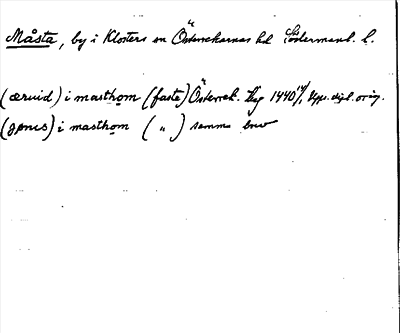 Måsta, by i Klosters sn Österrekarnas hd Södermanl. l.
(æruid) i masthom (faste) Österrek. Hg 1440 14/1 Upps. dipl. orig.
(jønis) i masthom ( „ ) samma brev